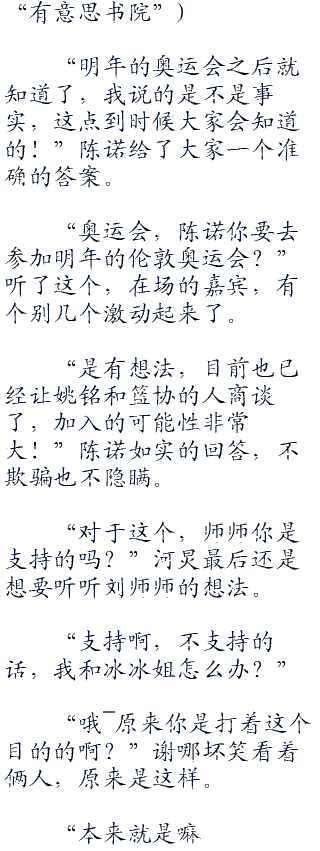 “有意思书院”）
“明年的奥运会之后就
知道了，我说的是不是事
实，这点到时候大家会知道
的！”陈诺给了大家一个准
确的答案。
“奥运会，陈诺你要去
参加明年的伦敦奥运会？”
听了这个，在场的嘉宾，有
个别几个激动起来了。
“是有想法，目前也已
经让姚铭和篮协的人商谈
了，加入的可能性非常
大！”陈诺如实的回答，不
欺骗也不隐瞒。
“对于这个，师师你是
支持的吗？”河炅最后还是
想要听听刘师师的想法。
“支持啊，不支持的
话，我和冰冰姐怎么办？”
“哦¯原来你是打着这个
目的的啊？”谢哪坏笑看着
俩人，原来是这样。
“本来就是嘛